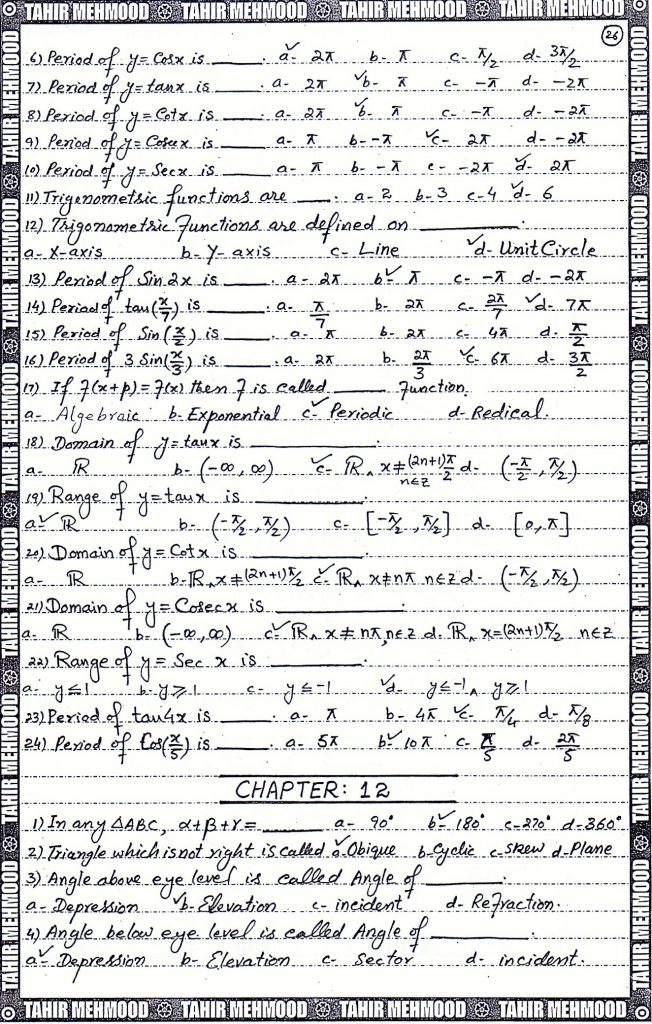 TAHIR MEHMOOD TAHIR MEHMOOD TAHIR MEHMOOD TAHIR MEHMOOD
26
6) Period of y = Cosx is ______. ✓a- 2π b- π c- π/2 d- 3π/2
7) Period of y= tanx is ______. a- 2π ✓b- π c- -π d- -2π
8) Period of y = Cotx is ______. a- 2π ✓b- π c- -π d- -2π
9) Period of y= Cosecx is ______. a- π b- -π ✓c- 2π d- -2π
10) Period of y= Secx is ______. a- π b- -π c- -2π ✓d- 2π
11) Trigonometric functions are ______. a- 2 b- 3 c- 4 ✓d- 6
12) Trigonometric Functions are defined on ______.
a- X-axis b- Y-axis c- Line ✓d- Unit Circle
13) Period of Sin 2x is ______. a- 2π b-✓ π c- -π d- -2π
14) Period of tan(x/7) is ______. a- π/7 b- 2π c- 2π/7 ✓d- 7π
15) Period of Sin (x/2) is ______. a- π b- 2π c- 4π d- π/2
16) Period of 3 Sin(x/3) is ______. a- 2π b- 2π/3 ✓c- 6π d- 3π/2
17) If f(x+p) = f(x) then f is called ______ Function.
a- Algebraic b- Exponential c-✓ Periodic d- Redical.
18) Domain of y = tanx is ______.
a- ℝ b- (-∞, ∞) ✓c- ℝ ∧ x≠(2n+1)π/2 n∈z d- (-π/2, π/2)
19) Range of y = tanx is ______.
a-✓ ℝ b- (-π/2, π/2) c- [-π/2, π/2] d- [0, π]
20) Domain of y = Cotx is ______.
a- ℝ b- ℝ ∧ x≠(2n+1)π/2 ✓c- ℝ ∧ x≠nπ n∈z d- (-π/2, π/2)
21) Domain of y = Cosecx is ______.
a- ℝ b- (-∞, ∞) c-✓ ℝ ∧ x≠ nπ, n∈z d- ℝ ∧ x=(2n+1)π/2 n∈z
22) Range of y = Sec x is ______.
a- y≤1 b- y≥1 c- y≤-1 ✓d- y≤-1 ∧ y≥1
23) Period of tan4x is ______. a- π b- 4π ✓c- π/4 d- π/8
24) Period of Cos(x/5) is ______. a- 5π b-✓ 10π c- π/5 d- 2π/5
CHAPTER: 12
1) In any ΔABC, α+β+γ = ______ a- 90° b-✓ 180° c- 270° d- 360°
2) Triangle which is not right is called ✓a- Obique b- Cyclic c- Skew d- Plane
3) Angle above eye level is called Angle of ______.
a- Depression ✓b- Elevation c- incident d- Refraction.
4) Angle below eye level is called Angle of ______.
a-✓ Depression b- Elevation c- Sector d- incident.
TAHIR MEHMOOD TAHIR MEHMOOD TAHIR MEHMOOD TAHIR MEHMOOD
TAHIR MEHMOOD TAHIR MEHMOOD TAHIR MEHMOOD TAHIR MEHMOOD TAHIR MEHMOOD TAHIR MEHMOOD
TAHIR MEHMOOD TAHIR MEHMOOD TAHIR MEHMOOD TAHIR MEHMOOD TAHIR MEHMOOD TAHIR MEHMOOD